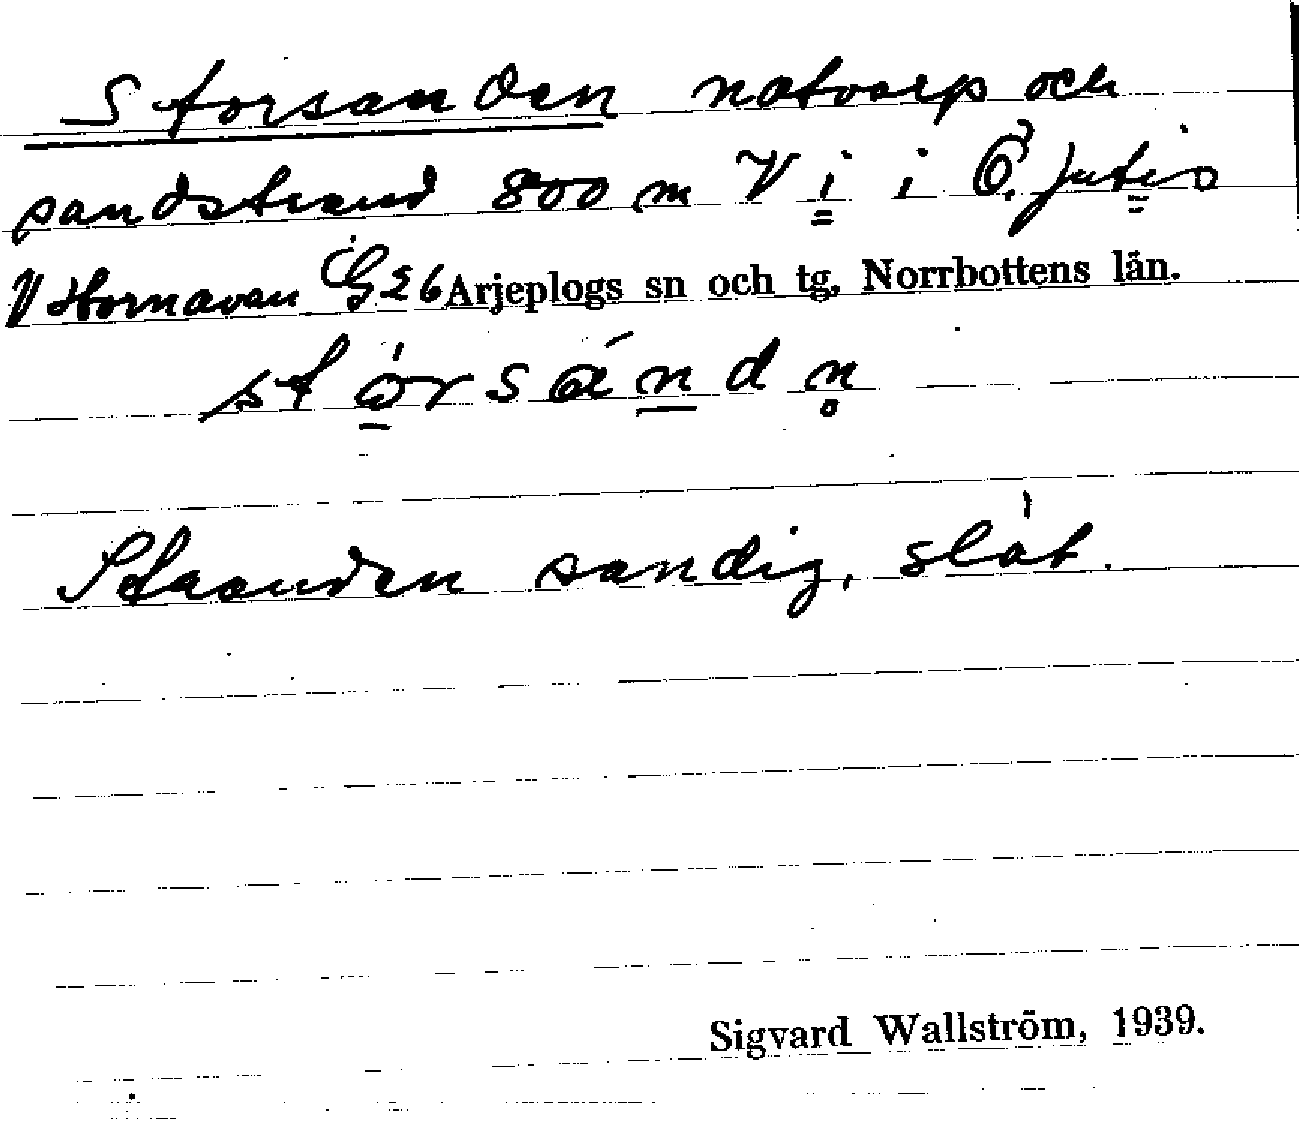 Storsanden notvarp och
sandstrand 800 m V i i Ö. Jutis
V Hornavan G 26 Arjeplogs sn och tg, Norrbottens län.
stòrsándn̥
Stranden sandig, slät.
Sigvard Wallström, 1939.